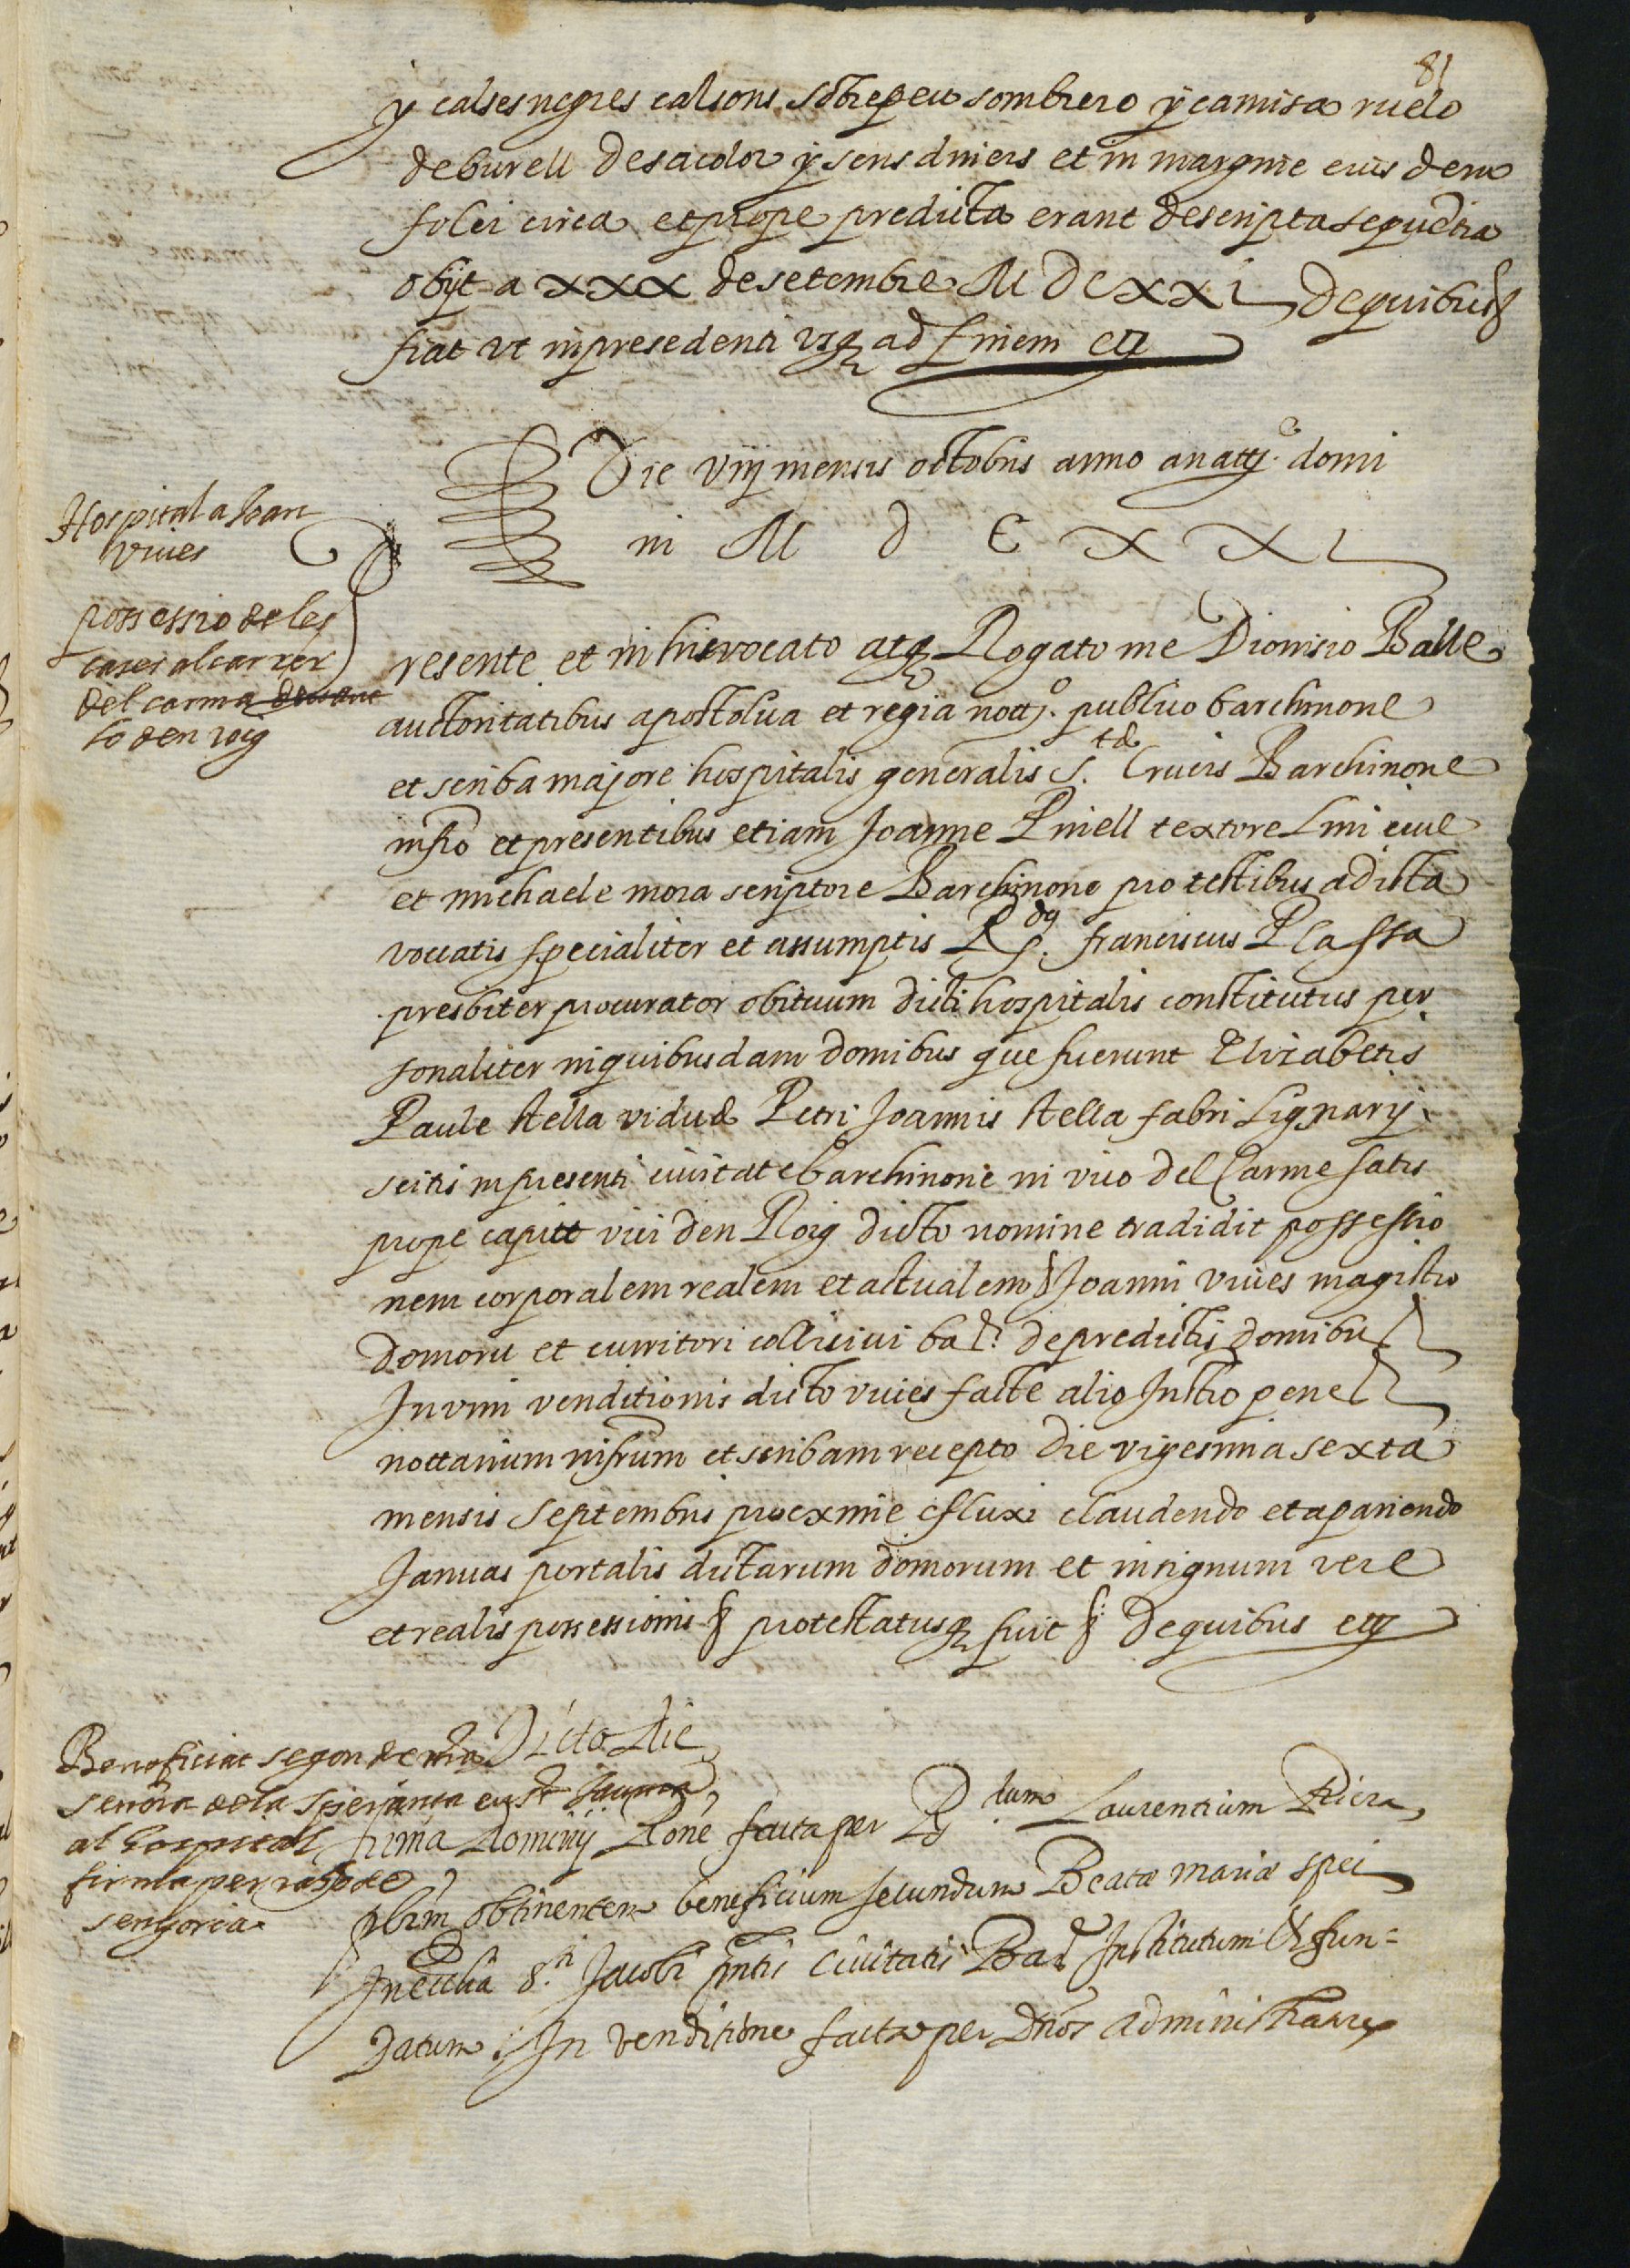 81
y calses negres calsons sobrepeu sombrero y camisa ruelo
de burell de sa color y sens diners et in margine eius dem
folei circa et prope predicta erant descripta sequẽtia
obijt a xxx de setembre M D C xxi de quibus
fiat vt in presedenti vsq ad finem etc
Die viij mensis octobris anno a natte domi
ni M D C X X I
Hospital a Joan
viues
possessio de les
cases al carrer
del carma
to den roig
resente et in his vocato atq Rogato me Dionisio Balle
auctoritatibus apostolica et regia notto. publico barchinone
et scriba majore hospitalis generalis S.tæ Crucis Barchinone
infro et presentibus etiam Joanne Piniell textore Lini ciue
et michaele mora scriptore Barchinone pro testibus ad ista
vocatis specialiter et assumptis Rdus. franciscus Plassa
presbiter procurator obituum dicti hospitalis constitutus per
sonaliter in quibusdam domibus que fuerunt Elizabetis
Paule stella viduæ Petri Joannis stella fabri Lignarij
scitis in presenti ciuitate barchinone in vico del Carme satis
prope caput vici den Roig dicto nomine tradidit possessio
nem corporalem realem et actualem Joanni viues magistro
domoru et curritori coll ciui bar. de predictis domibus
In vim venditionis dicto viues facte alio Instro penes
nottarium infrum et scribam recepto die vigesima sexta
mensis Septembris proxime efluxi claudendo et apariendo
Januas portalis dictarum domorum et in signum vere
et realis possessionis protestatusq fuit de quibus etc
Dicto die
Beneficiat segon de nra
senora de la speransa en St Jaume
al hospital
firma per raho de
senyoria
firma dominij Rone facta per Rdum. Laurentium Riera
pbrm obtinentem beneficium secundum Beatæ mariæ spei
In ecclia S.ti Jacobi pntis Ciuitatis Bar Institutum & fun-
datum. In venditione facta per dnos administratres